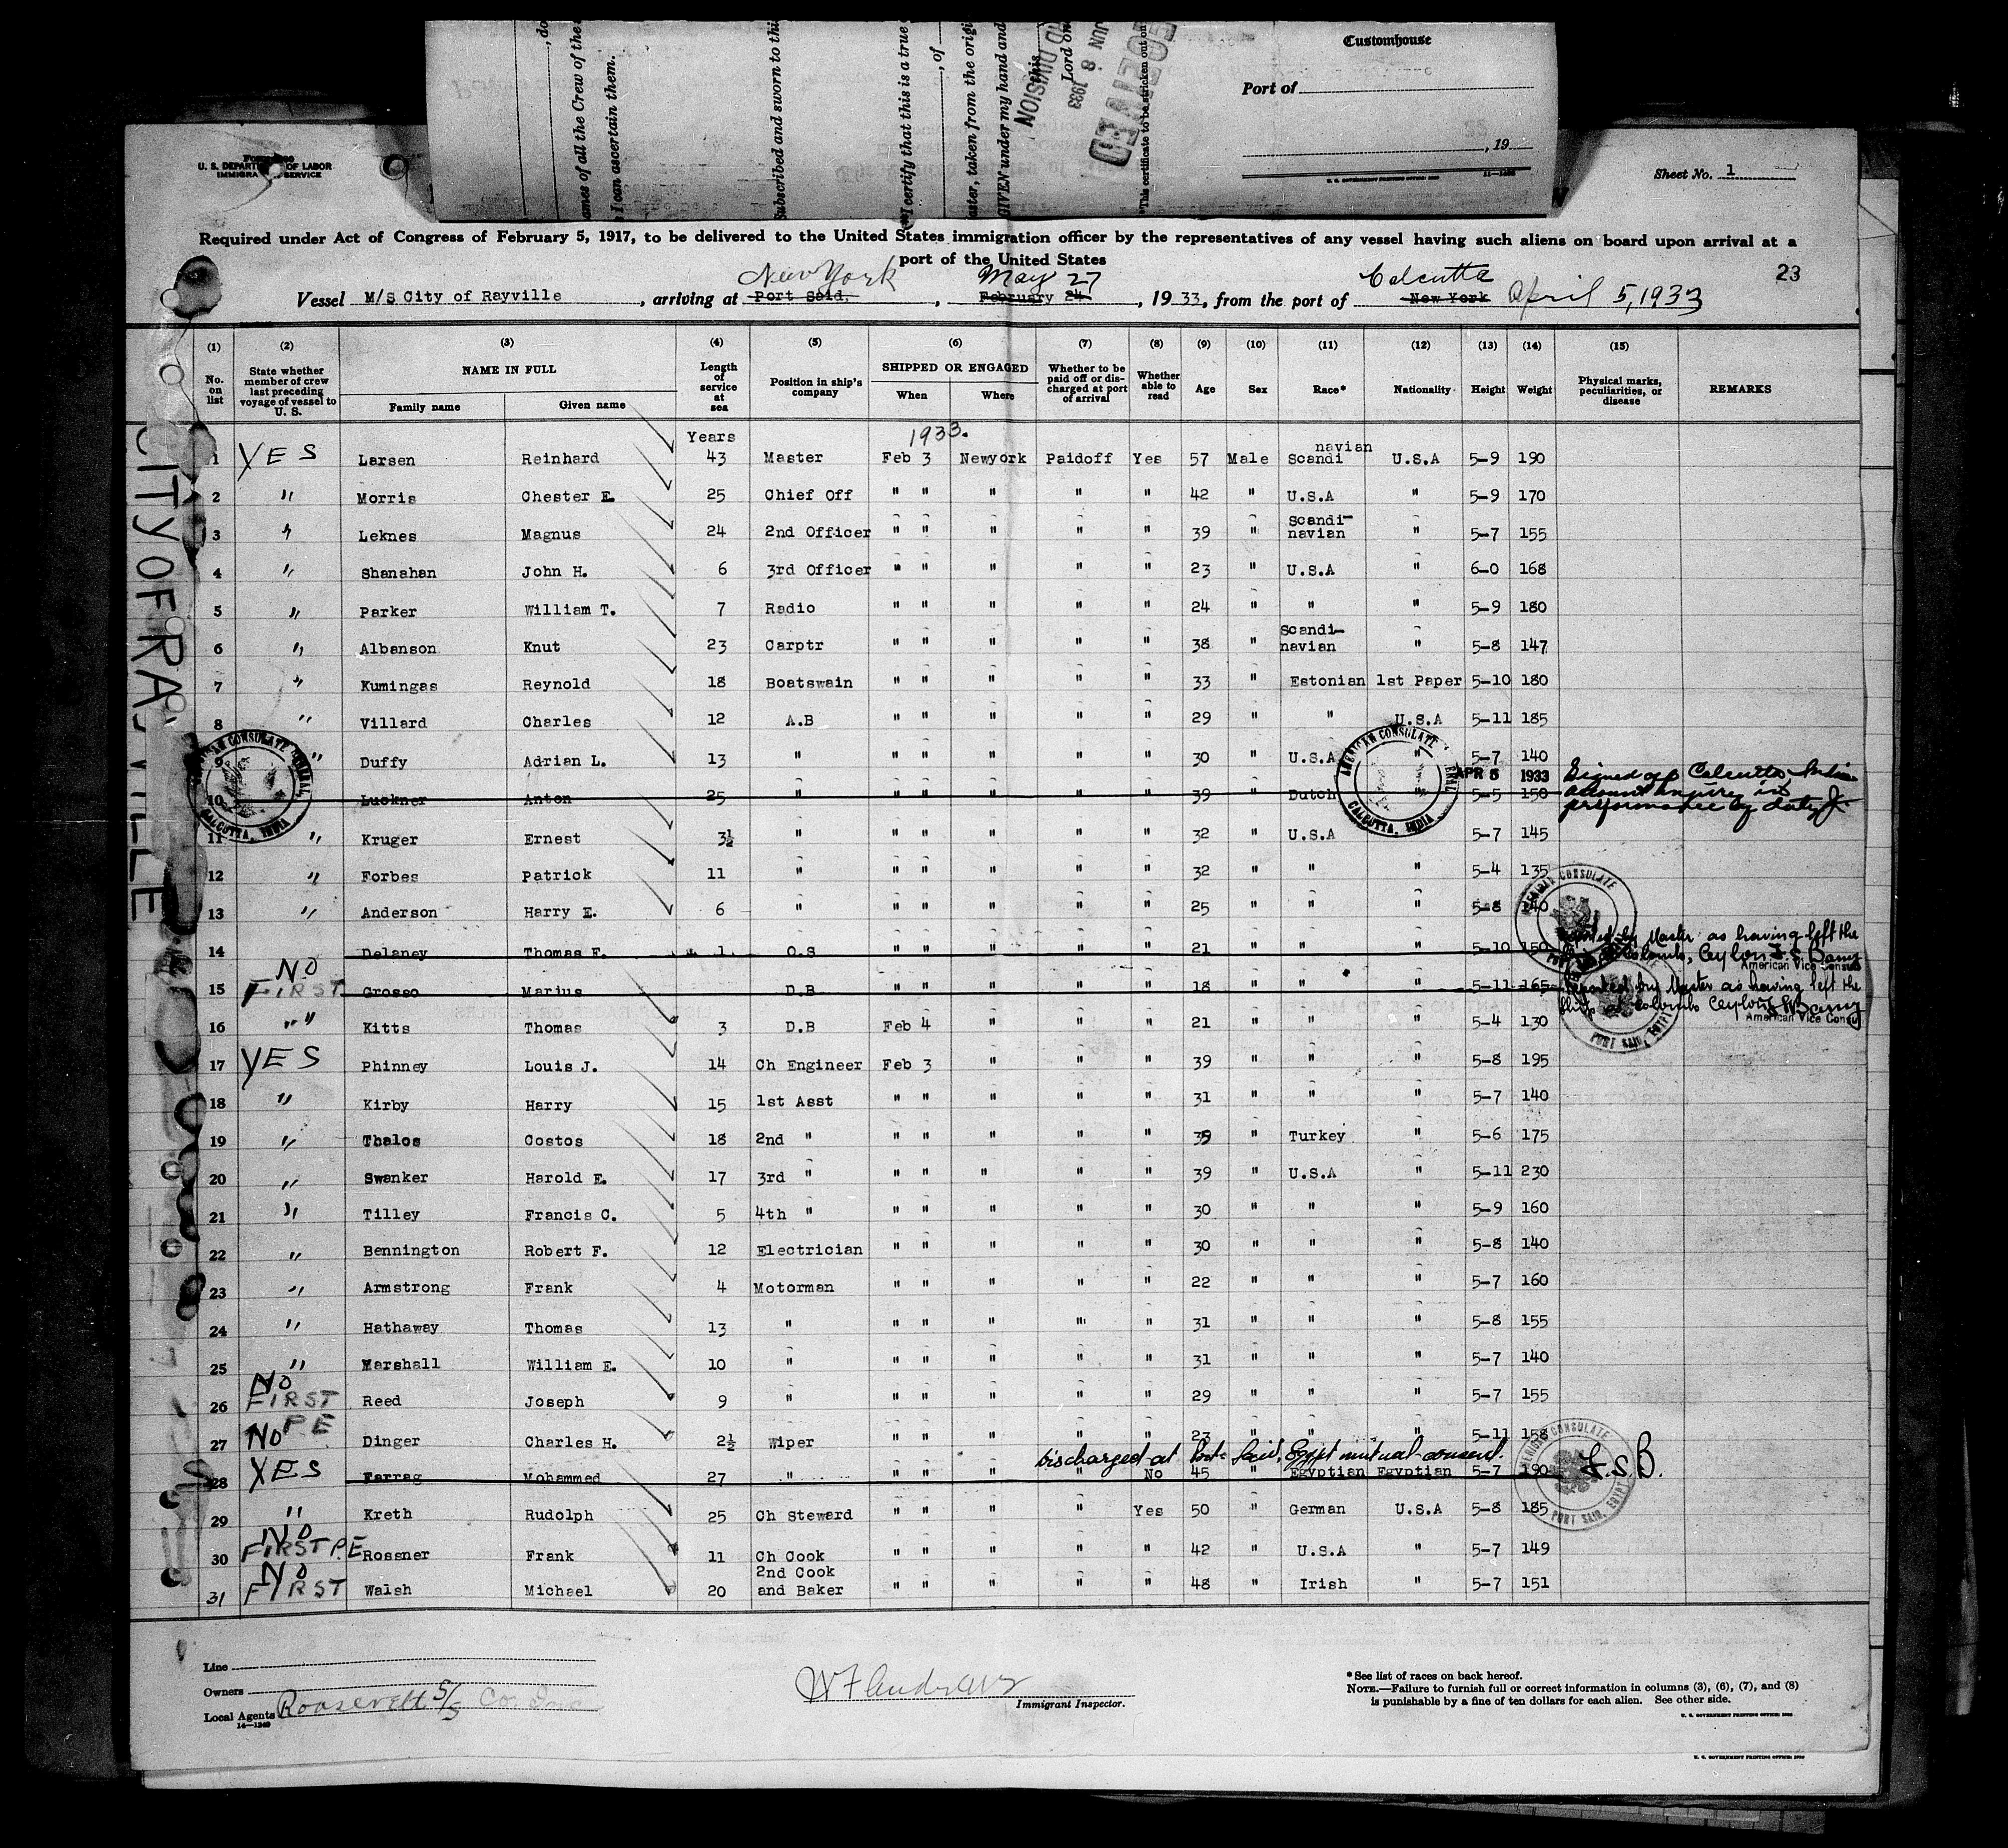 Customhouse
Port of
, 19
U. S. GOVERNMENT PRINTING OFFICE
, do
ames of all the Crew of the
I can ascertain them.
Subscribed and sworn to thi
I certify that this is a true
, of
aster, taken from the origi
GIVEN under my hand and
this
Lord on
DIVISION
JUN 8 1933
RECEIVED
*This certificate to be stricken out on
U. S. DEPARTMENT OF LABOR
IMMIGRATION SERVICE
Sheet No. 1
Required under Act of Congress of February 5, 1917, to be delivered to the United States immigration officer by the representatives of any vessel having such aliens on board upon arrival at a
port of the United States
23
New York May 27 Calcutta
Vessel M/S City of Rayville, arriving at Port Said, February 24, 1933, from the port of New York April 5, 1933
CITY OF RAYVILLE
(1) (2) (3) (4) (5) (6) (7) (8) (9) (10) (11) (12) (13) (14) (15)
No. on list
State whether member of crew last preceding voyage of vessel to U. S.
NAME IN FULL
Family name Given name
Length of service at sea
Position in ship's company
SHIPPED OR ENGAGED
When Where
Whether to be paid off or discharged at port of arrival
Whether able to read
Age
Sex
Race*
Nationality
Height
Weight
Physical marks, peculiarities, or disease
REMARKS
Years 1933.
1 YES Larsen Reinhard 43 Master Feb 3 Newyork Paidoff Yes 57 Male Scandinavian U.S.A 5-9 190
2 " Morris Chester E. 25 Chief Off " " " " " 42 " U.S.A " 5-9 170
3 " Leknes Magnus 24 2nd Officer " " " " " 39 " Scandi-navian " 5-7 155
4 " Shanahan John H. 6 3rd Officer " " " " " 23 " U.S.A " 6-0 168
5 " Parker William T. 7 Radio " " " " " 24 " " " 5-9 180
6 " Albanson Knut 23 Carptr " " " " " 38 " Scandi-navian " 5-8 147
7 " Kumingas Reynold 18 Boatswain " " " " " 33 " Estonian 1st Paper 5-10 180
8 " Villard Charles 12 A.B " " " " " 29 " " U.S.A 5-11 185
9 " Duffy Adrian L. 13 " " " " " " 30 " U.S.A " 5-7 140
10 Luckner Anton 25 " " " " " " 39 " Dutch " 5-5 150 APR 5 1933 Signed off Calcutta India account injury in performance of duty
AMERICAN CONSULATE GENERAL CALCUTTA, INDIA
AMERICAN CONSULATE GENERAL CALCUTTA, INDIA
11 " Kruger Ernest 3½ " " " " " " 32 " U.S.A " 5-7 145
12 " Forbes Patrick 11 " " " " " " 32 " " " 5-4 135
13 " Anderson Harry E. 6 " " " " " " 25 " " " 5-8 140
14 Delaney Thomas F. 1 O.S " " " " " 21 " " " 5-10 150 Reported by Master as having left the ship at Colombo, Ceylon
American Vice Consul
15 NO FIRST Grosso Marius D.B " " " " " 18 " " " 5-11 165 Reported by Master as having left the ship at Colombo Ceylon
American Vice Consul
AMERICAN CONSULATE PORT SAID, EGYPT
16 " " Kitts Thomas 3 D.B Feb 4 " " " 21 " " " 5-4 130
17 YES Phinney Louis J. 14 Ch Engineer Feb 3 " " " 39 " " " 5-8 195
18 " Kirby Harry 15 1st Asst " " " " " 31 " " " 5-7 140
19 " Thalos Costos 18 2nd " " " " " " 39 " Turkey " 5-6 175
20 " Swanker Harold E. 17 3rd " " " " " " 39 " U.S.A " 5-11 230
21 " Tilley Francis C. 5 4th " " " " " " 30 " " " 5-9 160
22 " Bennington Robert F. 12 Electrician " " " " " 30 " " " 5-8 140
23 " Armstrong Frank 4 Motorman " " " " " 22 " " " 5-7 160
24 " Hathaway Thomas 13 " " " " " " 31 " " " 5-8 155
25 " Marshall William E. 10 " " " " " " 31 " " " 5-7 140
26 NO FIRST Reed Joseph 9 " " " " " " 29 " " " 5-7 155
27 NO PE Dinger Charles H. 2½ Wiper " " " " " 23 " " " 5-11 158
Discharged at Port Said, Egypt mutual consent.
28 YES Farrag Mohammed 27 " " " " " No 45 " Egyptian Egyptian 5-7 190 J.S.B.
AMERICAN CONSULATE PORT SAID, EGYPT
29 " Kreth Rudolph 25 Ch Steward " " " " Yes 50 " German U.S.A 5-8 185
30 NO FIRST P.E Rossner Frank 11 Ch Cook " " " " " 42 " U.S.A " 5-7 149
31 NO FIRST Walsh Michael 20 2nd Cook and Baker " " " " " 48 " Irish " 5-7 151
Line
Owners
Local Agents Roosevelt S/S Co. Inc
14—1240
Immigrant Inspector.
*See list of races on back hereof.
NOTE.—Failure to furnish full or correct information in columns (3), (6), (7), and (8)
is punishable by a fine of ten dollars for each alien. See other side.
U. S. GOVERNMENT PRINTING OFFICE
U. S. GOVERNMENT PRINTING OFFICE